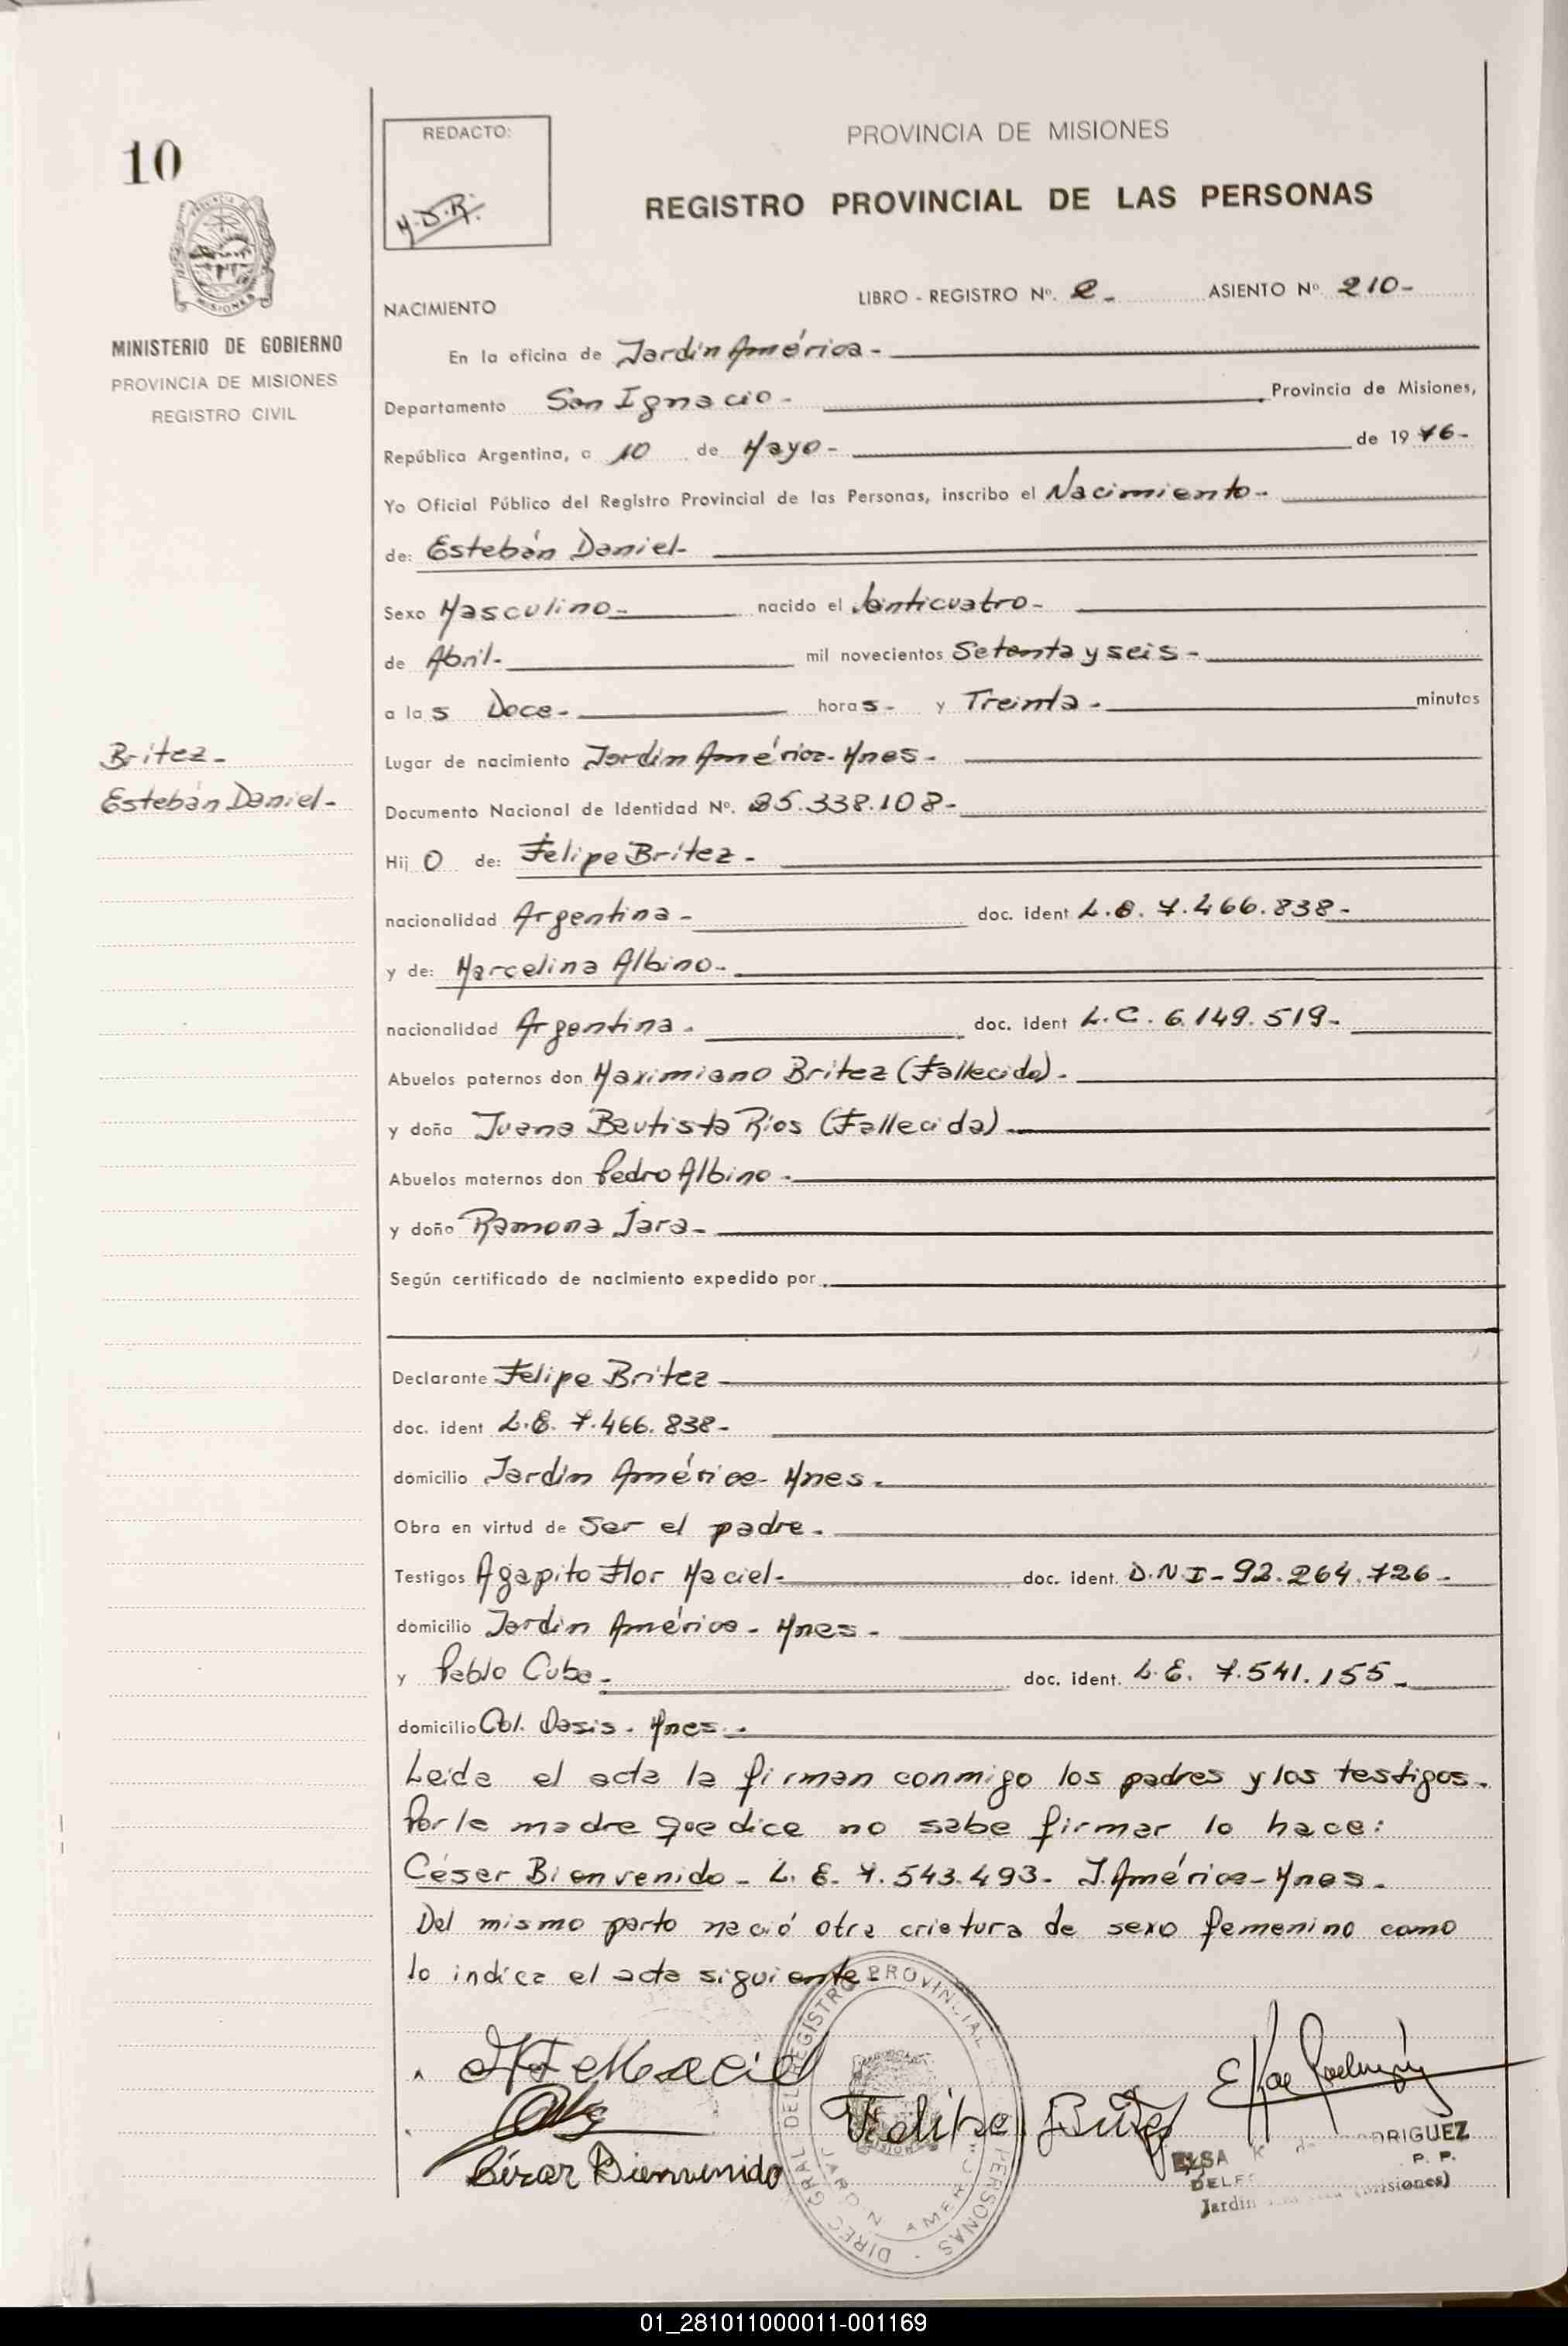 10
REDACTO:
M.D.R.
PROVINCIA DE MISIONES
REGISTRO PROVINCIAL DE LAS PERSONAS
MISIONES
MINISTERIO DE GOBIERNO
PROVINCIA DE MISIONES
REGISTRO CIVIL
NACIMIENTO LIBRO - REGISTRO Nº. 2- ASIENTO Nº 210-
En la oficina de Jardín América-
Departamento San Ignacio- Provincia de Misiones,
República Argentina, a 10 de Mayo- de 1976-
Yo Oficial Público del Registro Provincial de las Personas, inscribo el Nacimiento-
de: Estebán Daniel-
Sexo Masculino- nacido el Veinticuatro-
de Abril- mil novecientos Setenta y seis-
a las Doce- horas- y Treinta- minutos
Britez-
Estebán Daniel-
Lugar de nacimiento Jardín América-Mnes-
Documento Nacional de Identidad Nº. 25.338.108-
Hijo de: Felipe Britez-
nacionalidad Argentina- doc. ident L.E. 7.466.838-
y de: Marcelina Albino-
nacionalidad Argentina- doc. ident L.C. 6.149.519-
Abuelos paternos don Maximiano Britez (Fallecido)-
y doña Juana Bautista Ríos (Fallecida)-
Abuelos maternos don Pedro Albino-
y doña Ramona Jara-
Según certificado de nacimiento expedido por
Declarante Felipe Britez
doc. ident L.E. 7.466.838-
domicilio Jardín América-Mnes-
Obra en virtud de ser el padre-
Testigos Agapito Flor Maciel- doc. ident. D.N.I-92.264.726-
domicilio Jardín América-Mnes-
y Pablo Cuba- doc. ident. L.E. 7.541.155-
domicilio Col. Oasis-Mnes-
Leída el acta la firman conmigo los padres y los testigos.
Por la madre que dice no sabe firmar lo hace:
César Bienvenido- L.E. 7.543.493- J.América-Mnes-
Del mismo parto nació otra criatura de sexo femenino como
lo indica el acta siguiente-
DIREC GRAL DEL REGISTRO PROVINCIAL PERSONAS
JARDIN AMERICA
Maciel
Felipe Britez
César Bienvenido
ELSA K de RODRIGUEZ
P. P.
Jardín (Misiones)
01_281011000011-001169